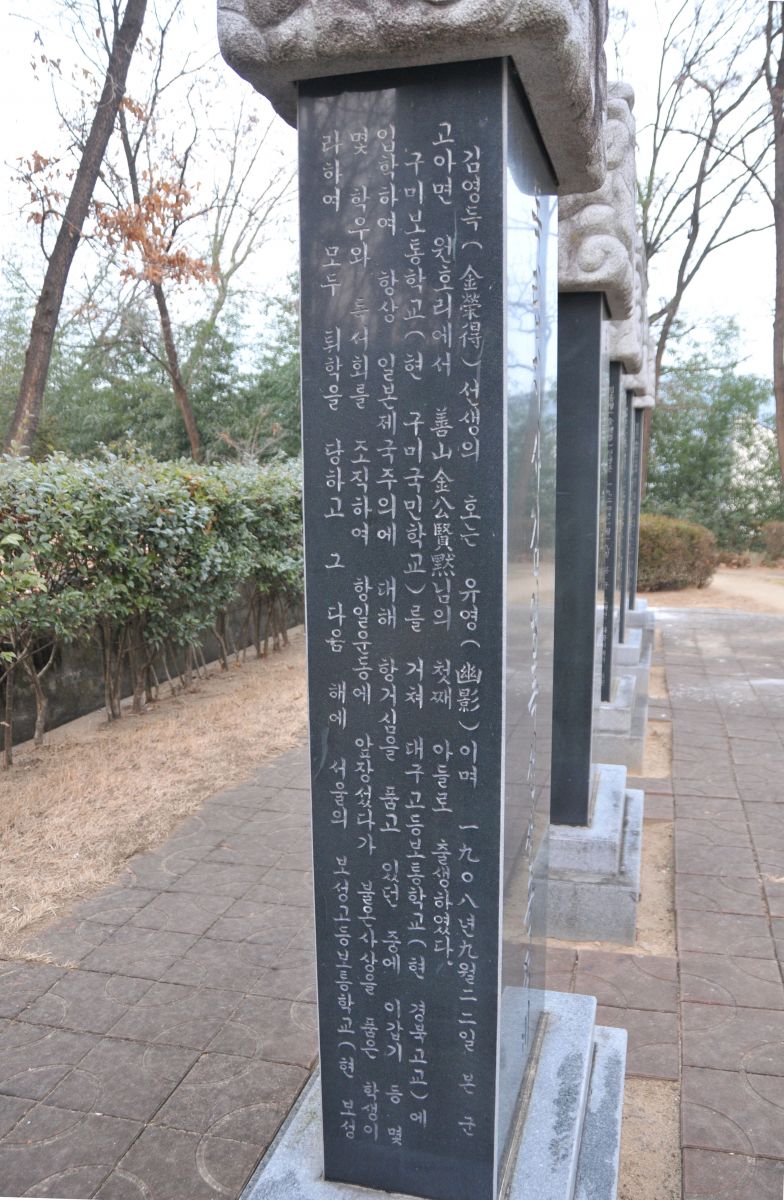 김영득(金榮得)선생의 호는 유영(幽影)이며 一九○八년九월二二일 본 군
고아면 원호리에서 善山金公賢黙님의 첫째 아들로 출생하였다.
구미보통학교(현 구미국민학교)를 거쳐 대구고등보통학교(현 경북고교)에
입학하여 항상 일본제국주의에 대해 항거심을 품고 있던 중에 이갑기 등 몇
몇 학우와 독서회를 조직하여 항일운동에 앞장섰다가 불온사상을 품은 학생이
라하여 모두 퇴학을 당하고 그 다음 해에 서울의 보성고등보통학교(현 보성